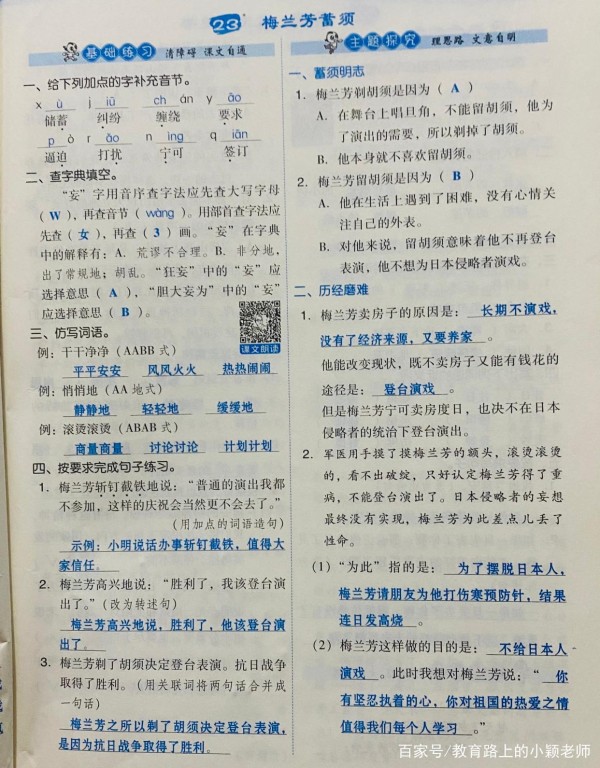 23 梅兰芳蓄须
基础练习 清障碍 课文自通
一、给下列加点的字补充音节。
x ù j iū ch án y āo
储蓄 纠纷 缠绕 要求
p ò r ǎo n ìng q iān
逼迫 打扰 宁可 签订
二、查字典填空。
“妄”字用音序查字法应先查大写字母
（W），再查音节（wàng）。用部首查字法应
先查（女），再查（3）画。“妄”在字典
中的解释有：A. 荒谬不合理。B. 非分地，
出了常规地；胡乱。“狂妄”中的“妄”应
选择意思（A），“胆大妄为”中的“妄”
应选择意思（B）。
课文朗读
三、仿写词语。
例：干干净净（AABB 式）
平平安安 风风火火 热热闹闹
例：悄悄地（AA 地式）
静静地 轻轻地 缓缓地
例：滚烫滚烫（ABAB 式）
商量商量 讨论讨论 计划计划
四、按要求完成句子练习。
1. 梅兰芳斩钉截铁地说：“普通的演出我都
不参加，这样的庆祝会当然更不会去了。”
（用加点的词语造句）
示例：小明说话办事斩钉截铁，值得大
家信任。
2. 梅兰芳高兴地说：“胜利了，我该登台演
出了。”（改为转述句）
梅兰芳高兴地说，胜利了，他该登台演
出了。
3. 梅兰芳剃了胡须决定登台表演。抗日战争
取得了胜利。（用关联词将两句话合并成
一句话）
梅兰芳之所以剃了胡须决定登台表演，
是因为抗日战争取得了胜利。
主题探究 理思路 文意自明
一、蓄须明志
1. 梅兰芳剃胡须是因为（A）
A. 在舞台上唱旦角，不能留胡须，他为
了演出的需要，所以剃掉了胡须。
B. 他本身就不喜欢留胡须。
2. 梅兰芳留胡须是因为（B）
A. 他在生活上遇到了困难，没有心情关
注自己的外表。
B. 对他来说，留胡须意味着他不再登台
表演，他不想为日本侵略者演戏。
二、历经磨难
1. 梅兰芳卖房子的原因是：长期不演戏，
没有了经济来源，又要养家。
他能改变现状，既不卖房子又能有钱花的
途径是：登台演戏。
但是梅兰芳宁可卖房度日，也决不在日本
侵略者的统治下登台演出。
2. 军医用手摸了摸梅兰芳的额头，滚烫滚烫
的，看不出破绽，只好认定梅兰芳得了重
病，不能登台演出了。日本侵略者的妄想
最终没有实现，梅兰芳为此差点儿丢了
性命。
（1）“为此”指的是：为了摆脱日本人，
梅兰芳请朋友为他打伤寒预防针，结果
连日发高烧。
（2）梅兰芳这样做的目的是：不给日本人
演戏。此时我想对梅兰芳说：“你
有坚忍执着的心，你对祖国的热爱之情
值得我们每个人学习。”
百家号/教育路上的小颖老师